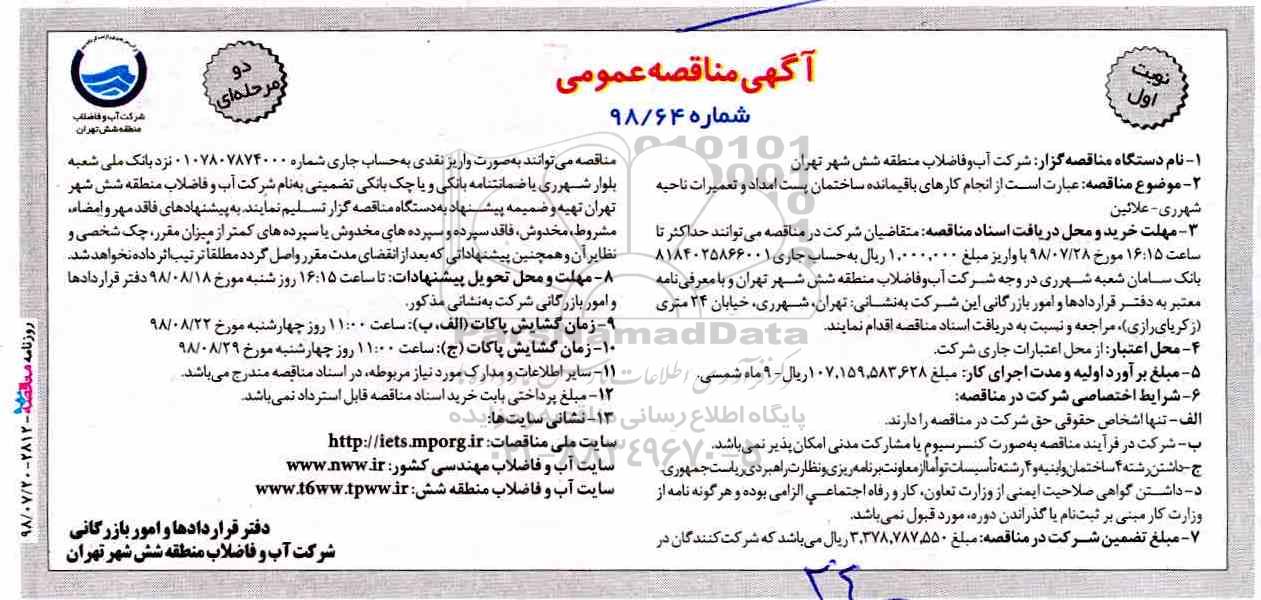 نوبت
اول
آگهی مناقصه عمومی
شماره ۹۸/۶۴
دو
مرحله‌ای
شرکت آب و فاضلاب
منطقه شش تهران
۱- نام دستگاه مناقصه‌گزار: شرکت آب‌وفاضلاب منطقه شش شهر تهران
۲- موضوع مناقصه: عبارت است از انجام کارهای باقیمانده ساختمان پست امداد و تعمیرات ناحیه
شهرری- علائین
۳- مهلت خرید و محل دریافت اسناد مناقصه: متقاضیان شرکت در مناقصه می‌توانند حداکثر تا
ساعت ۱۶:۱۵ مورخ ۹۸/۰۷/۲۸ با واریز مبلغ ۱,۰۰۰,۰۰۰ ریال به‌حساب جاری ۸۱۸۴۰۲۵۸۶۶۰۰۱
بانک سامان شعبه شهرری در وجه شرکت آب‌وفاضلاب منطقه شش شهر تهران و با معرفی‌نامه
معتبر به دفتر قراردادها و امور بازرگانی این شرکت به‌نشانی: تهران، شهرری، خیابان ۲۴ متری
(زکریای‌رازی)، مراجعه و نسبت به دریافت اسناد مناقصه اقدام نمایند.
۴- محل اعتبار: از محل اعتبارات جاری شرکت.
۵- مبلغ برآورد اولیه و مدت اجرای کار: مبلغ ۱۰۷,۱۵۹,۵۸۳,۶۲۸ ریال- ۹ ماه شمسی.
۶- شرایط اختصاصی شرکت در مناقصه:
الف- تنها اشخاص حقوقی حق شرکت در مناقصه را دارند.
ب- شرکت در فرآیند مناقصه به‌صورت کنسرسیوم یا مشارکت مدنی امکان‌پذیر نمی‌باشد.
ج- داشتن رشته ۴ ساختمان و ابنیه و ۴ رشته تأسیسات توأماً از معاونت برنامه‌ریزی و نظارت راهبردی ریاست جمهوری.
د- داشتن گواهی صلاحیت ایمنی از وزارت تعاون، کار و رفاه اجتماعی الزامی بوده و هرگونه نامه از
وزارت کار مبنی بر ثبت‌نام یا گذراندن دوره، مورد قبول نمی‌باشد.
۷- مبلغ تضمین شرکت در مناقصه: مبلغ ۳,۳۷۸,۷۸۷,۵۵۰ ریال می‌باشد که شرکت‌کنندگان در
مناقصه می‌توانند به‌صورت واریز نقدی به‌حساب جاری شماره ۰۱۰۷۸۰۷۸۷۴۰۰۰ نزد بانک ملی شعبه
بلوار شهرری یا ضمانتنامه بانکی و یا چک بانکی تضمینی به‌نام شرکت آب و فاضلاب منطقه شش شهر
تهران تهیه و ضمیمه پیشنهاد به‌دستگاه مناقصه گزار تسلیم نمایند. به پیشنهادهای فاقد مهر و امضاء،
مشروط، مخدوش، فاقد سپرده و سپرده های مخدوش یا سپرده های کمتر از میزان مقرر، چک شخصی و
نظایر آن و همچنین پیشنهاداتی که بعد از انقضای مدت مقرر واصل گردد مطلقاً ترتیب اثر داده نخواهد شد.
۸- مهلت و محل تحویل پیشنهادات: تا ساعت ۱۶:۱۵ روز شنبه مورخ ۹۸/۰۸/۱۸ دفتر قراردادها
و امور بازرگانی شرکت به‌نشانی مذکور.
۹- زمان گشایش پاکات (الف، ب): ساعت ۱۱:۰۰ روز چهارشنبه مورخ ۹۸/۰۸/۲۲
۱۰- زمان گشایش پاکات (ج): ساعت ۱۱:۰۰ روز چهارشنبه مورخ ۹۸/۰۸/۲۹
۱۱- سایر اطلاعات و مدارک مورد نیاز مربوطه، در اسناد مناقصه مندرج می‌باشد.
۱۲- مبلغ پرداختی بابت خرید اسناد مناقصه قابل استرداد نمی‌باشد.
۱۳- نشانی سایت‌ها:
سایت ملی مناقصات: http://iets.mporg.ir
سایت آب و فاضلاب مهندسی کشور: www.nww.ir
سایت آب و فاضلاب منطقه شش: www.t6ww.tpww.ir
دفتر قراردادها و امور بازرگانی
شرکت آب و فاضلاب منطقه شش شهر تهران
روزنامه مناقصه - ۲۸۱۲ - ۹۸/۰۷/۲۰
ParsNamadData
پایگاه اطلاع رسانی مناقصه و مزایده
۰۲۱-۸۸۳۴۹۶۷۰-۵
۲۴